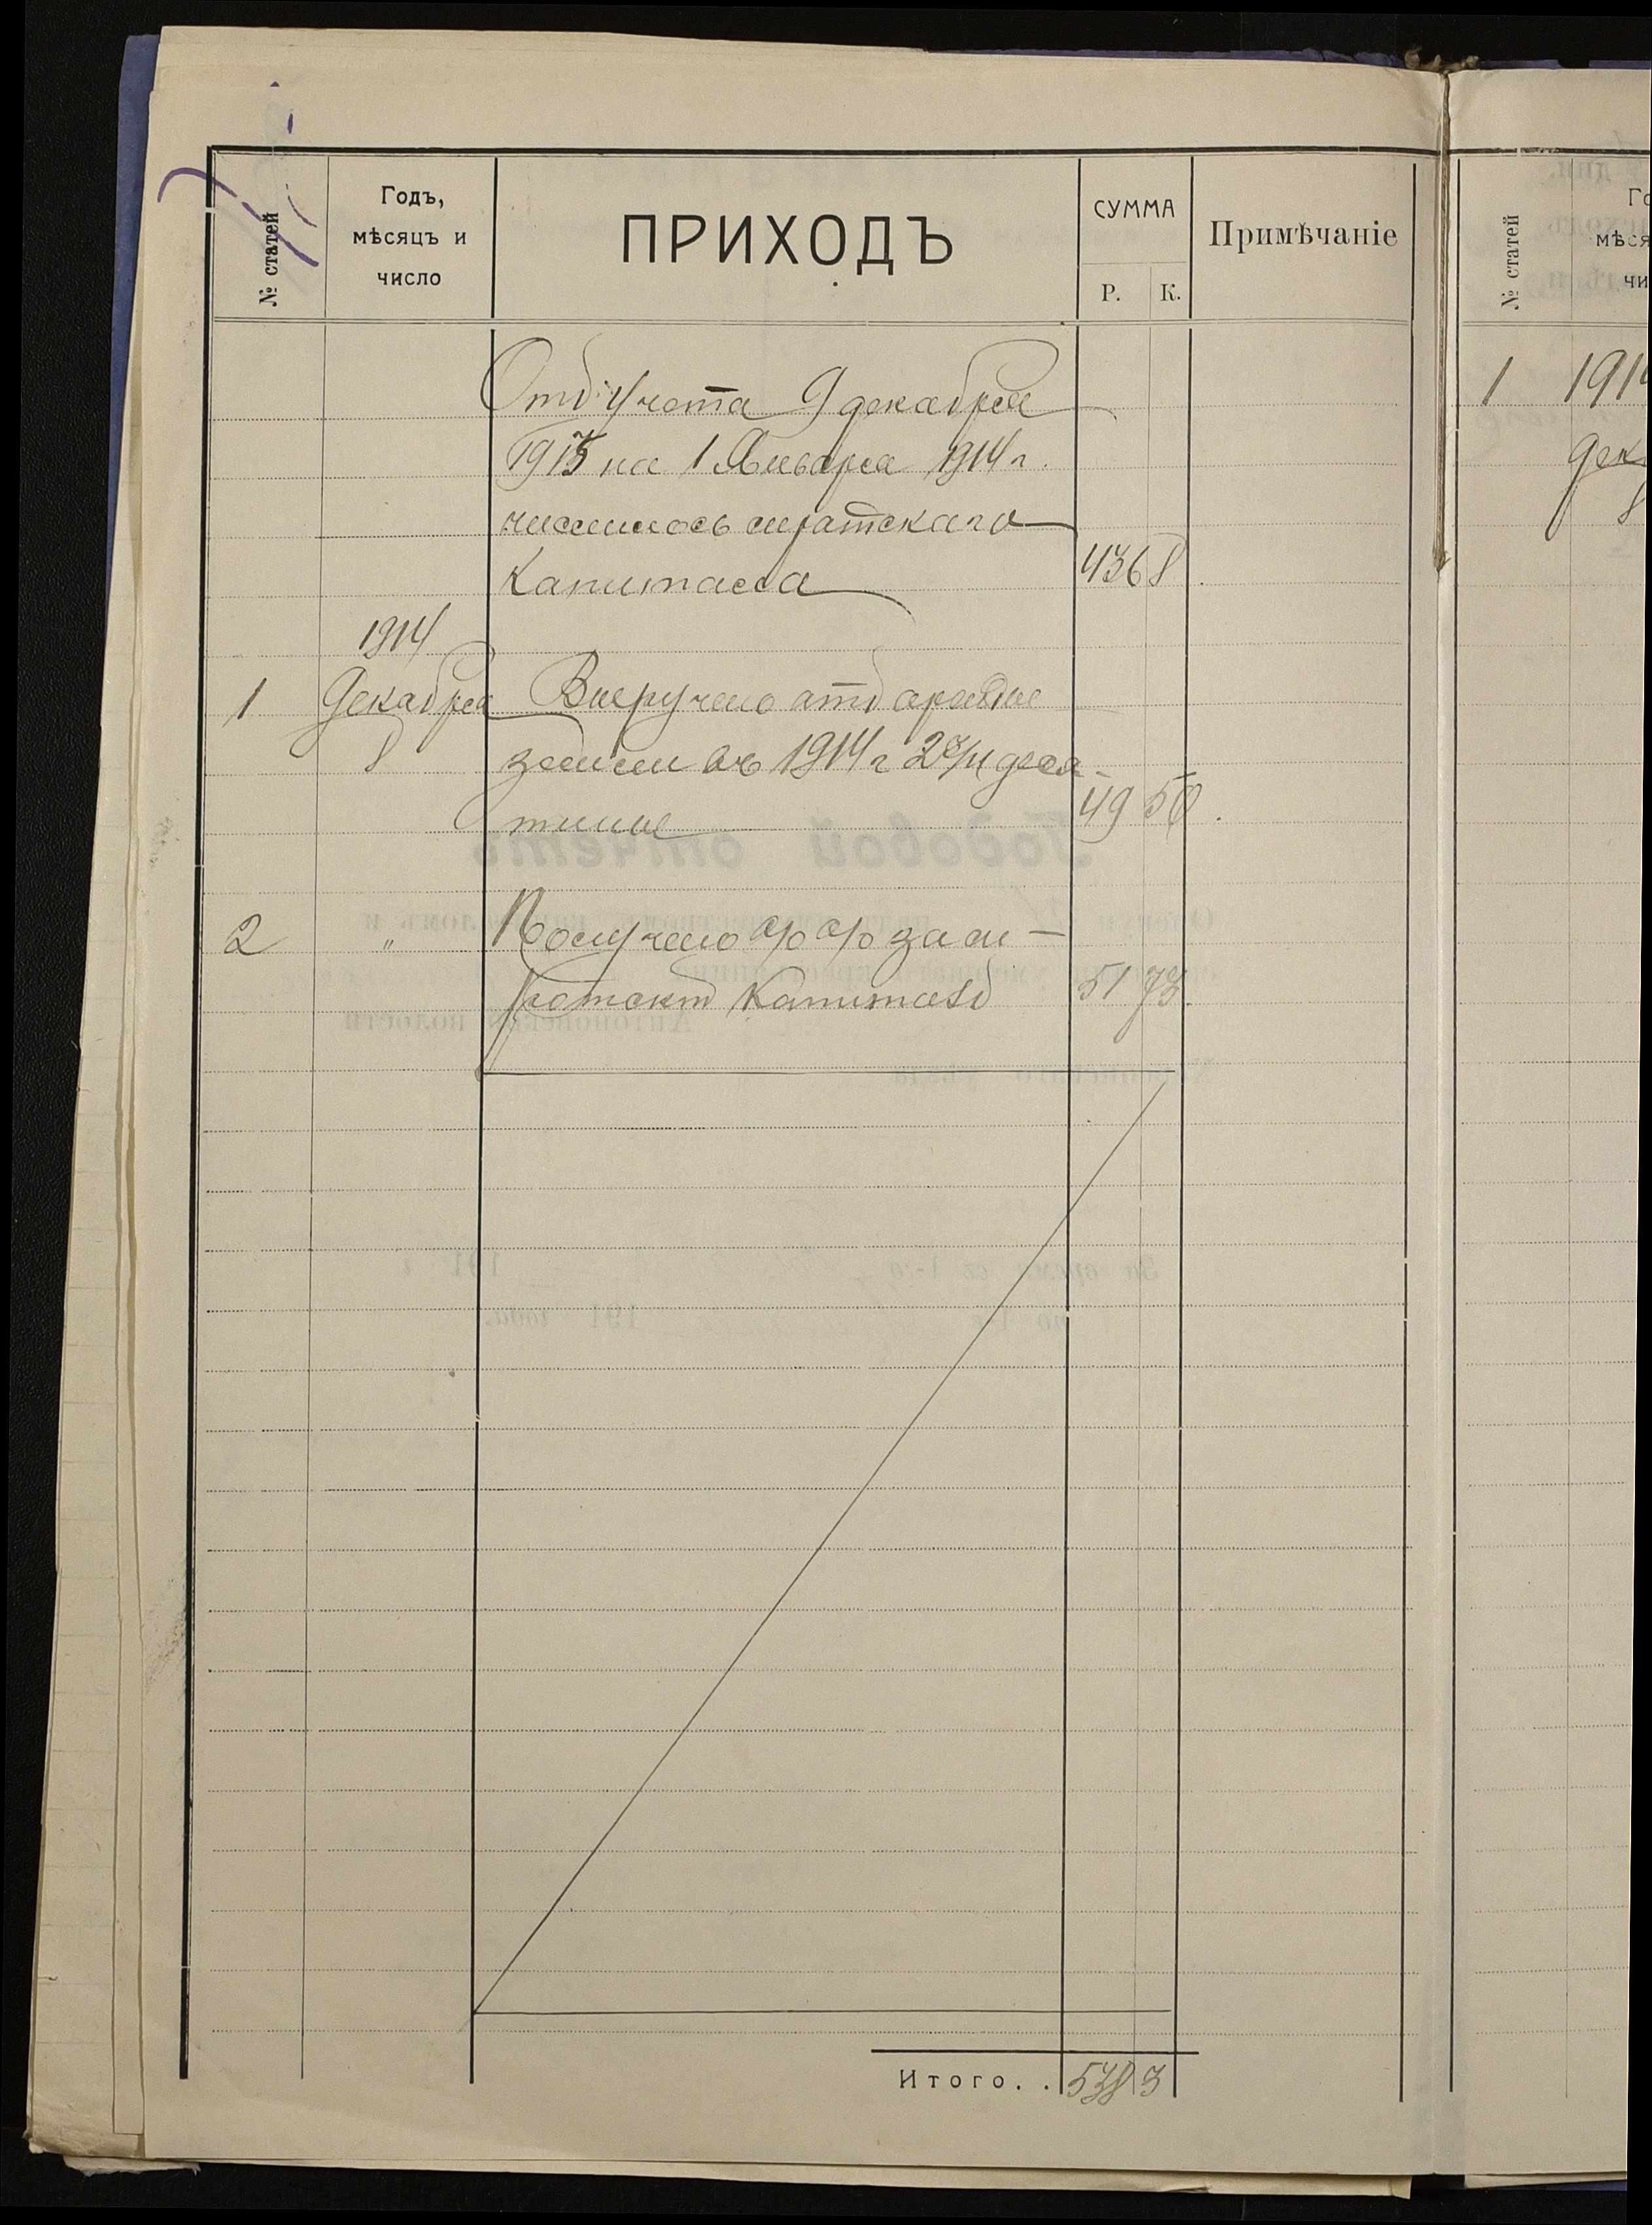 № статей
Годъ,
мѣсяцъ и
число
ПРИХОДЪ
СУММА
Р. К.
Примѣчаніе
Отъ учета 9 декабря
1913 на 1 Января 1914 г.
числилось сиратскаго
капитала 436 8
1914
1 Декабря Выручено атъ аренды
8 земли въ 1914 г 2 3/4 деся-
тины 49 50
2 " Получено % % за си-
ротскій капиталъ 51 73.
Итого. . 538 3
№ статей
1 1914